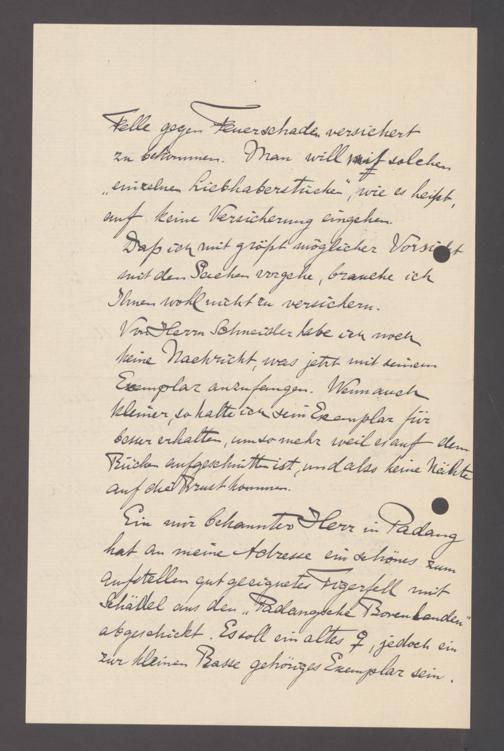 Felle gegen Feuerschaden versichert
zu bekommen. Man will auf solchen
„einzelnen Liebhaberstücken", wie es heißt,
auf keine Versicherung eingehen.
Daß ich mit größt möglicher Vorsicht
mit den Sachen vorgehe, brauche ich
Ihnen wohl nicht zu versichern.
Von Herrn Schneider habe ich noch
keine Nachricht, was jetzt mit seinem
Exemplar anzufangen. Wenn auch
kleiner, so halte ich sein Exemplar für
besser erhalten, umsomehr weil es auf dem
Rücken aufgeschnitten ist, und also keine Nähte
auf die Brust kommen.
Ein mir bekannter Herr in Padang
hat an meine Adresse ein schönes zum
Aufstellen gut geeignetes Tigerfell mit
Schädel aus den „Padangsche Bovenlanden"
abgeschickt. Es soll ein altes ♀, jedoch ein
zur kleinen Rasse gehöriges Exemplar sein.